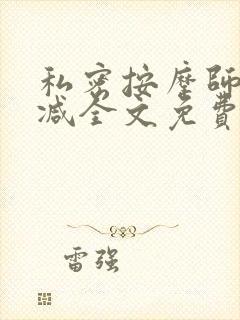 私密按摩師
减全文免費
雷强